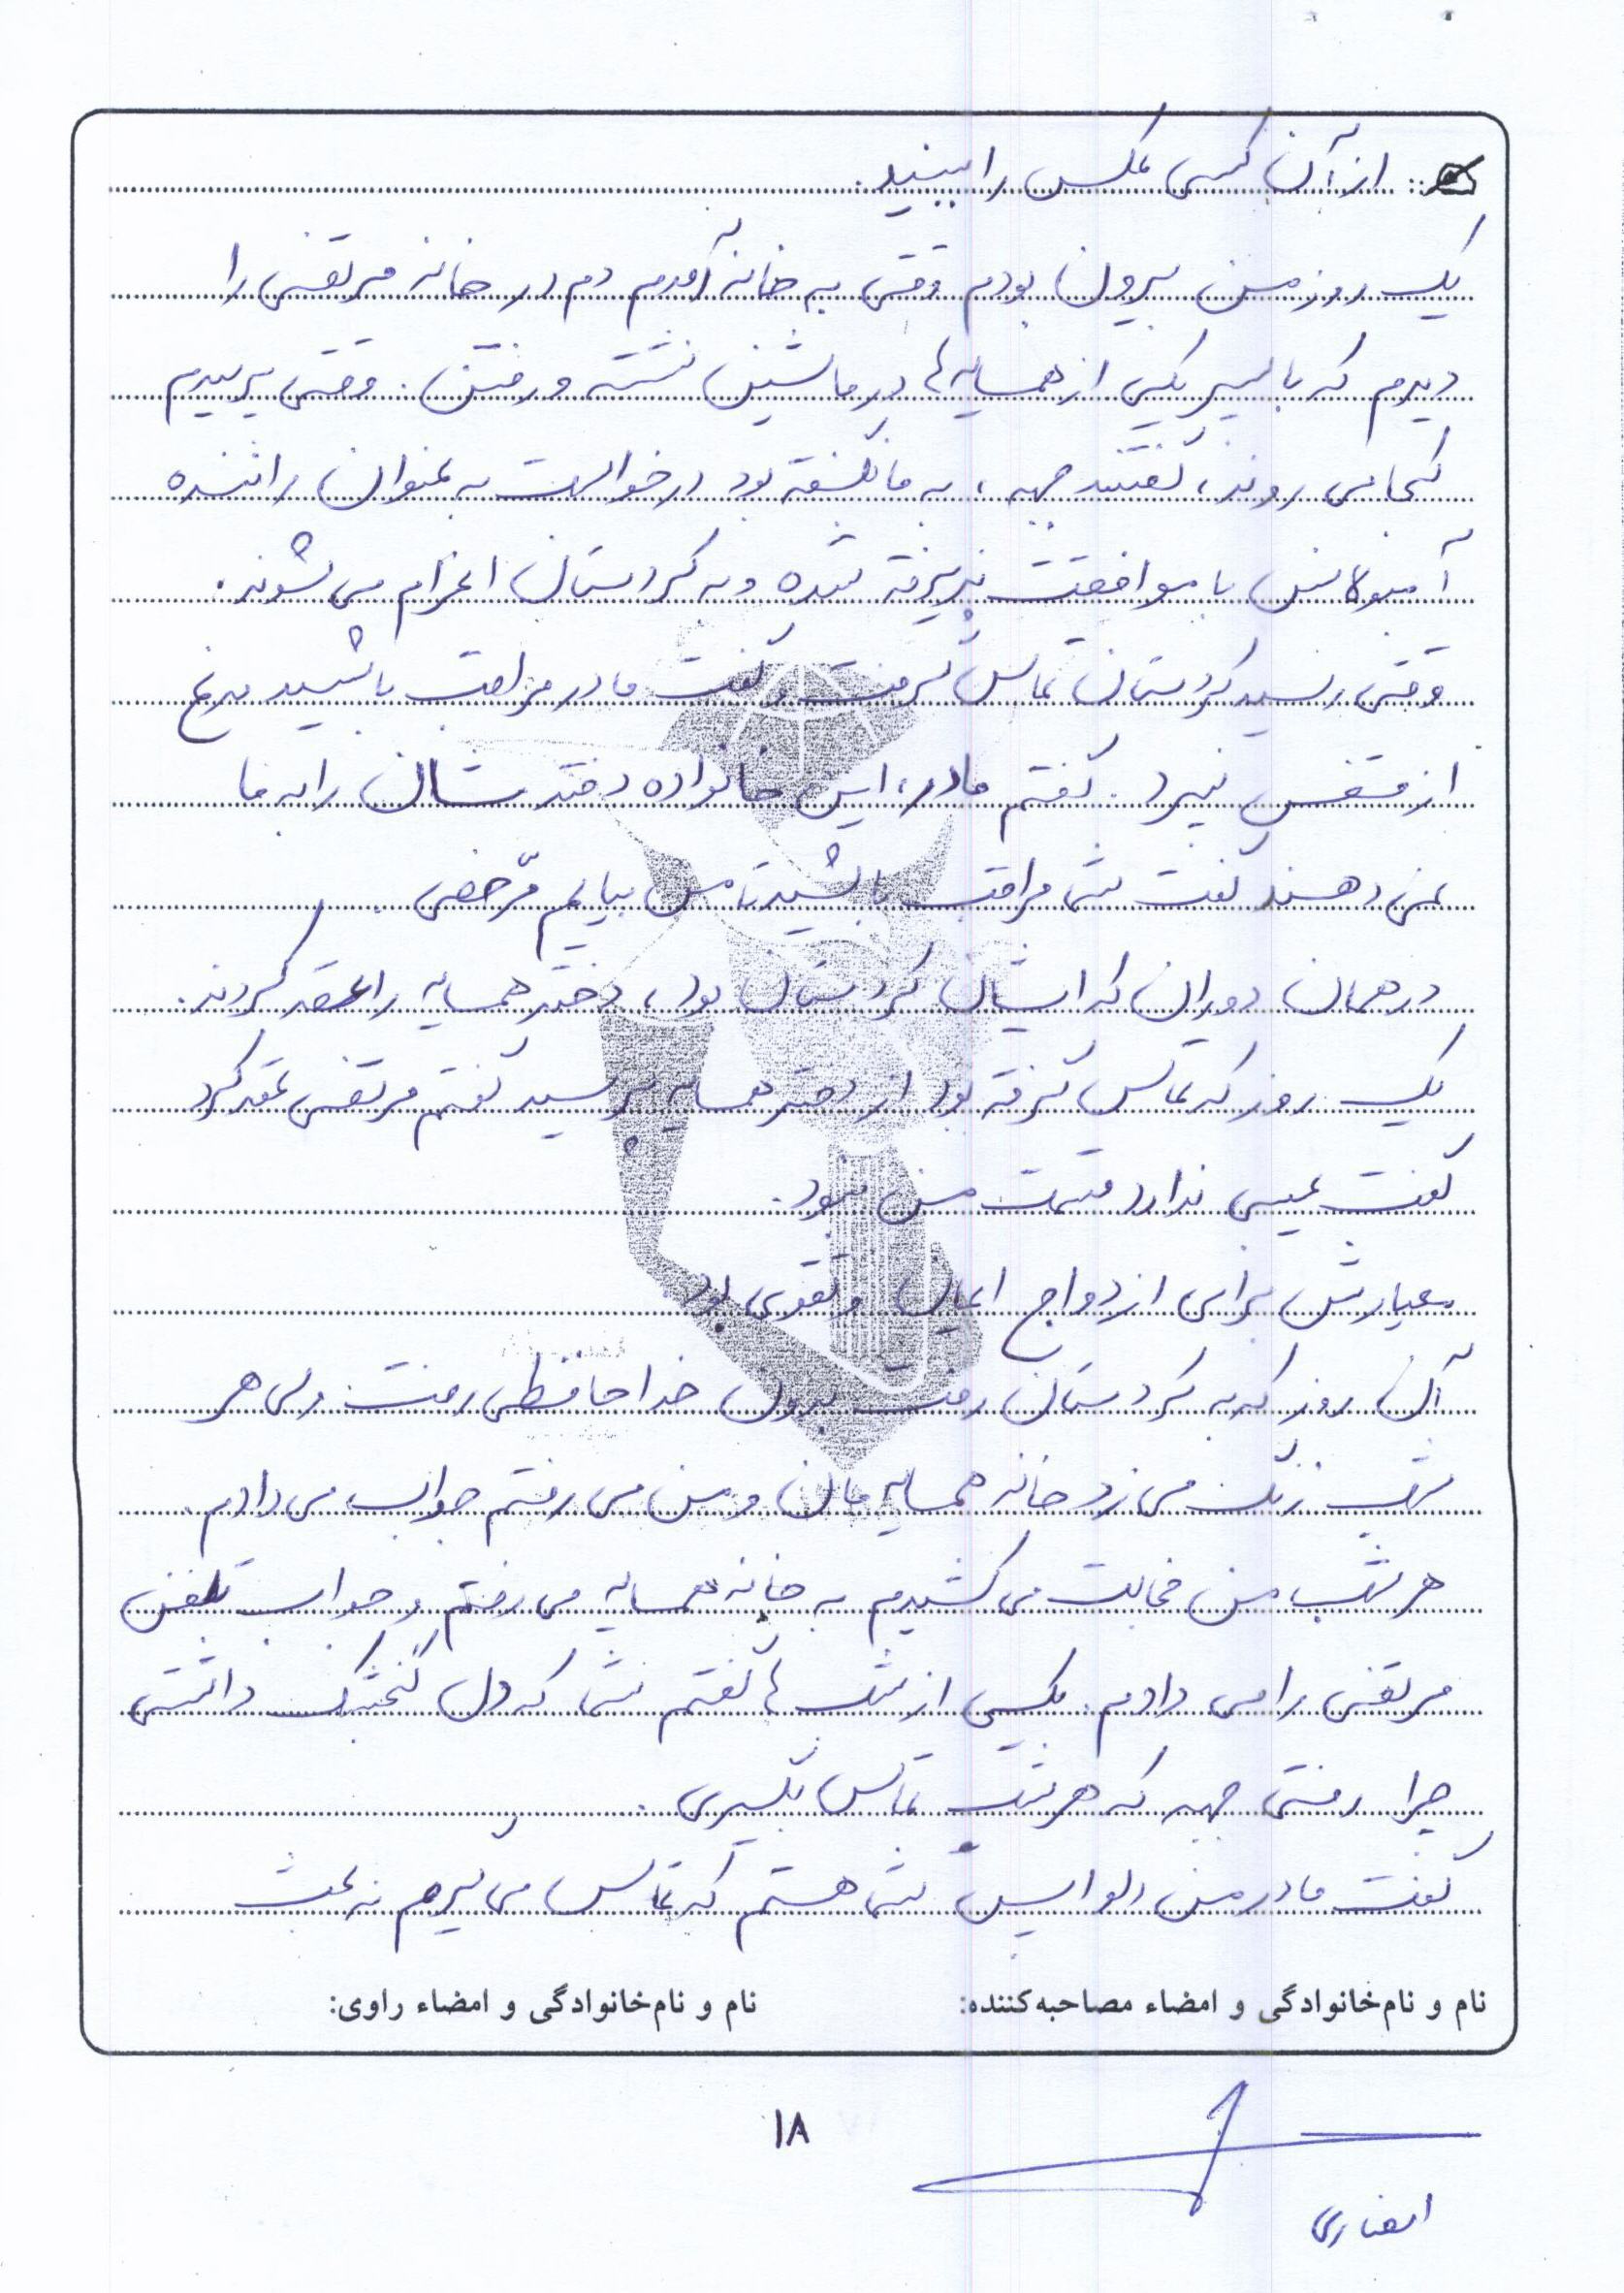 از آن کسی عکس را ببیند.
یک روز من بیرون بودم وقتی به خانه آمدم دم در خانه مرتضی را
دیدم که با پسر یکی از همسایه ها در ماشین نشسته و رفتن. وقتی پرسیدم
کجا می روند، گفتند جبهه، به ما نگفته بود درخواست به عنوان راننده
آمبولانس با موافقت پذیرفته شده و به کردستان اعزام می شوند.
وقتی رسید کردستان تماس گرفت و گفت مادر مراقب باشید مرغ
از قفس نپرد. گفتم مادر، این خانواده دخترشان را به ما
نمی دهند گفت شما مراقب باشید تا من بیایم مرّخصی.
در همان دوران که ایشان کردستان بود، دختر همسایه را عقد کردند.
یک روز که تماس گرفته بود از دختر همسایه پرسید گفتم مرتضی عقد کرد
گفت عیبی ندارد قسمت من نبود.
معیارش برای ازدواج ایمان و تقوی بود
آن روز که به کردستان رفت بدون خداحافظی رفت. ولی هر
شب زنگ می زد خانه همسایه مان و من می رفتم جواب می دادم.
هر شب من خجالت می کشیدم به خانه همسایه می رفتم و جواب تلفن
مرتضی را می دادم. یکی از شب ها گفتم شما که دل گنجشک داشتی
چرا رفتی جبهه که هر شب تماس بگیری.
گفت مادر من دلواپس شما هستم که تماس می گیرم نه بحث
نام و نام‌خانوادگی و امضاء مصاحبه‌کننده: نام و نام‌خانوادگی و امضاء راوی:
۱۸
انصاری